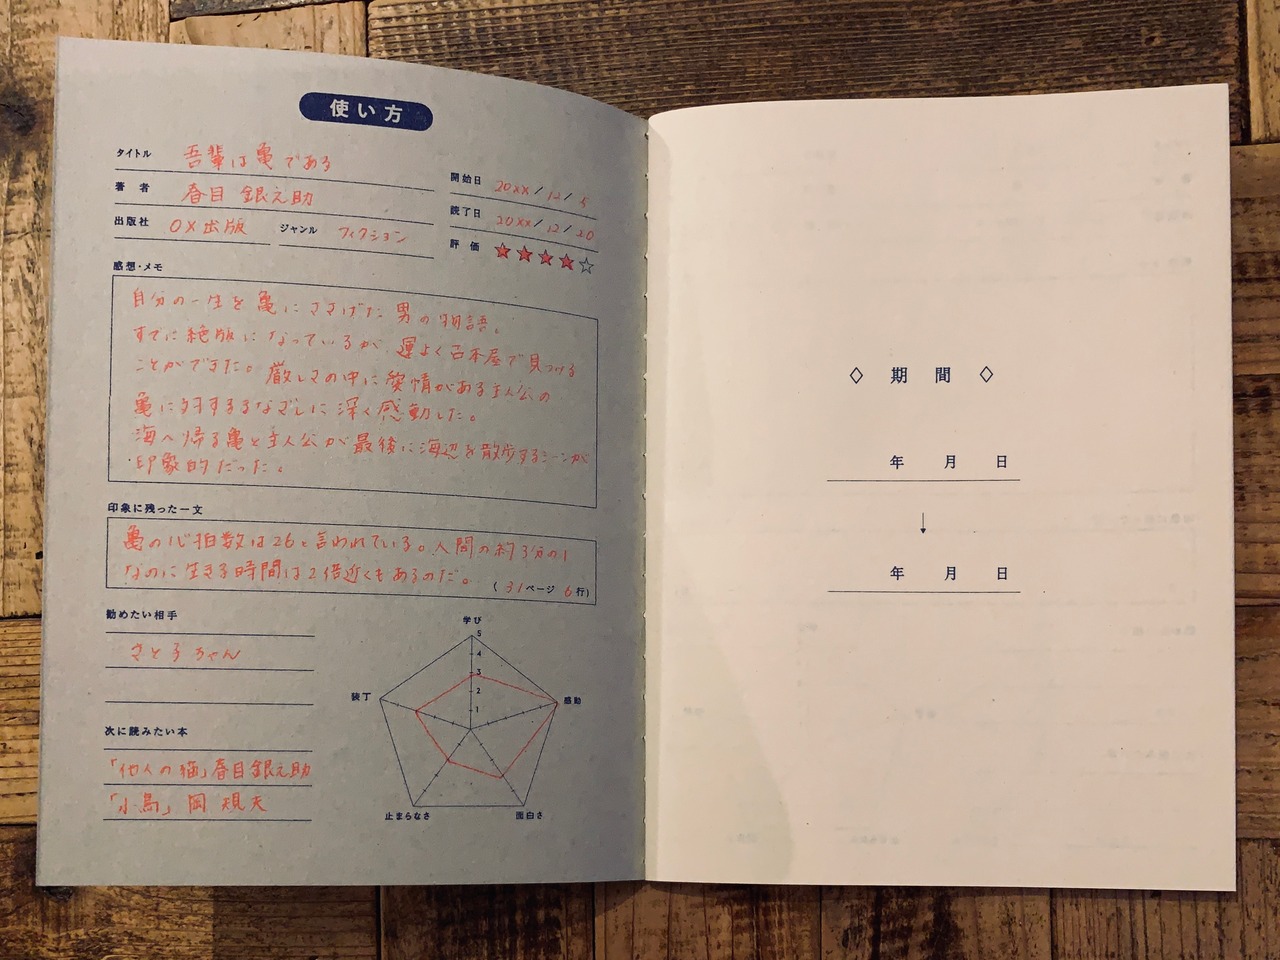 使い方
タイトル 吾輩は亀である
著者 春目 銀之助
出版社 OX出版 ジャンル フィクション
開始日 20xx/12/5
読了日 20xx/12/20
評価 ★★★★☆
感想・メモ
自分の一生を亀にささげた男の物語。
すでに絶版になっているが、運よく古本屋で見つける
ことができた。厳しさの中に愛情がある主人公の
亀に対するまなざしに深く感動した。
海へ帰る亀と主人公が最後に海辺を散歩するシーンが
印象的だった。
印象に残った一文
亀の心拍数は26と言われている。人間の約3分の1
なのに生きる時間は2倍近くもあるのだ。
(31ページ 6行)
勧めたい相手
さと子ちゃん
次に読みたい本
「他人の猫」春目銀之助
「小島」岡 規天
学び
5
4
3
2
1
感動
面白さ
止まらなさ
装丁
◇ 期 間 ◇
年 月 日
↓
年 月 日